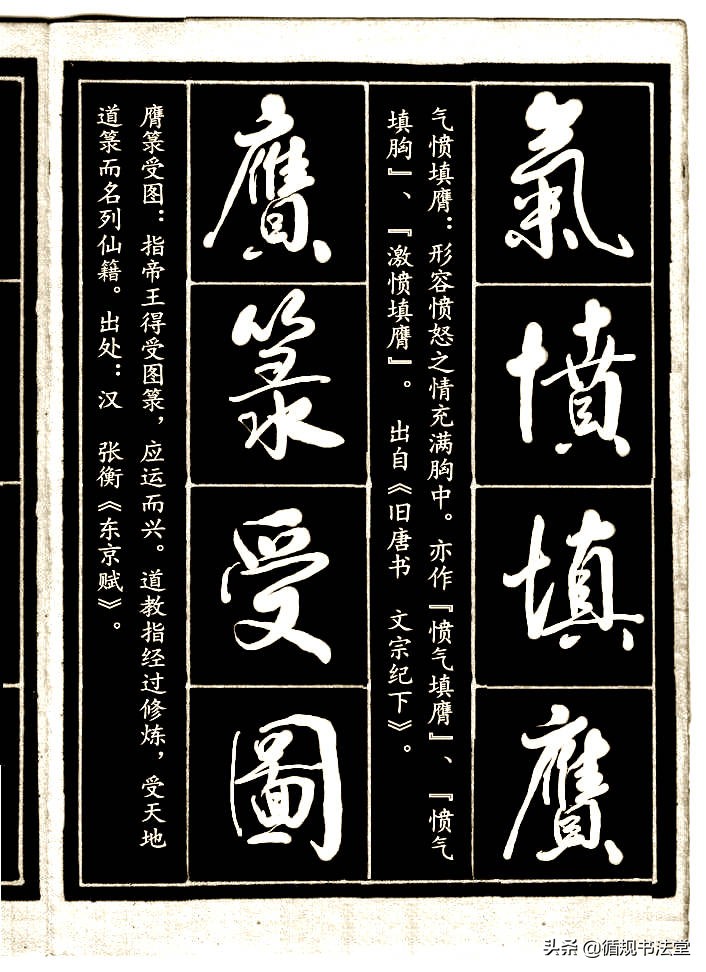 氣憤填膺
气愤填膺：形容愤怒之情充满胸中。亦作『愤气填膺』、『愤气
填胸』、『激愤填膺』。 出自《旧唐书 文宗纪下》。
膺箓受圖
膺箓受图：指帝王得受图箓，应运而兴。道教指经过修炼，受天地
道箓而名列仙籍。出处：汉 张衡《东京赋》。
头条 @循规书法堂